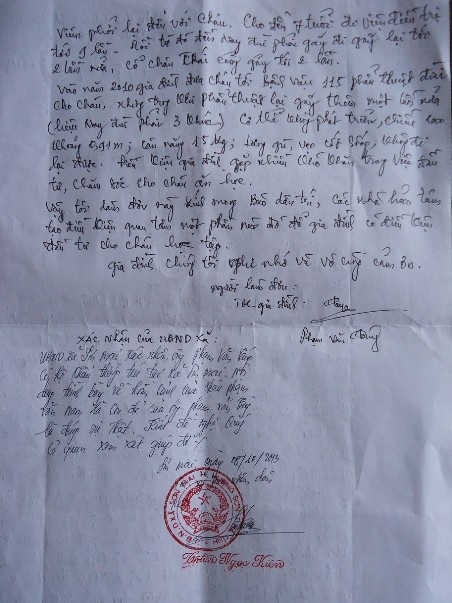 viêm phổi lại đến với cháu. Cho đến 7 tuổi đi viện điều trị
tới 9 lần. Rồi từ đó đến nay đùi phải gãy đi gãy lại tới
2 lần nữa, cổ chân trái cũng gãy tới 2 lần.
vào năm 2010 gia đình đưa cháu tới Bệnh viện 115 phẫu thuật
cho cháu, nhưng sau khi phẫu thuật lại gãy thêm một lần nữa
(hiện nay đùi phải 3 khúc) Cơ thể không phát triển, chiều cao
khoảng 0,9m; cân nặng 15kg; lưng gù, vẹo cột sống, không đi
lại được. Điều kiện gia đình gặp nhiều khó khăn trong việc điều
trị, chăm sóc cho cháu ăn học.
Vậy tôi làm đơn này kính mong Báo dân trí, các nhà hảo tâm
tạo điều kiện quan tâm một phần nào đó để gia đình có điều kiện
đầu tư cho cháu học tập.
gia đình chúng tôi nghi nhớ và vô cùng cảm ơn.
người làm đơn:
TM. gia đình:
Phạm văn
XÁC NHẬN CỦA UBND XÃ:
UBND xã Sơn Mai xác nhận ông Phạm văn
Có hộ khẩu thường trú tại xã Sơn mai, nội
dung trình bày về hoàn cảnh của cháu phạm
là con đẻ của ông phạm văn
là đúng sự thật. Kính đề nghị
Cơ quan xem xét giúp đỡ
Sơn mai, ngày /2013
Trần Ngọc Kiên